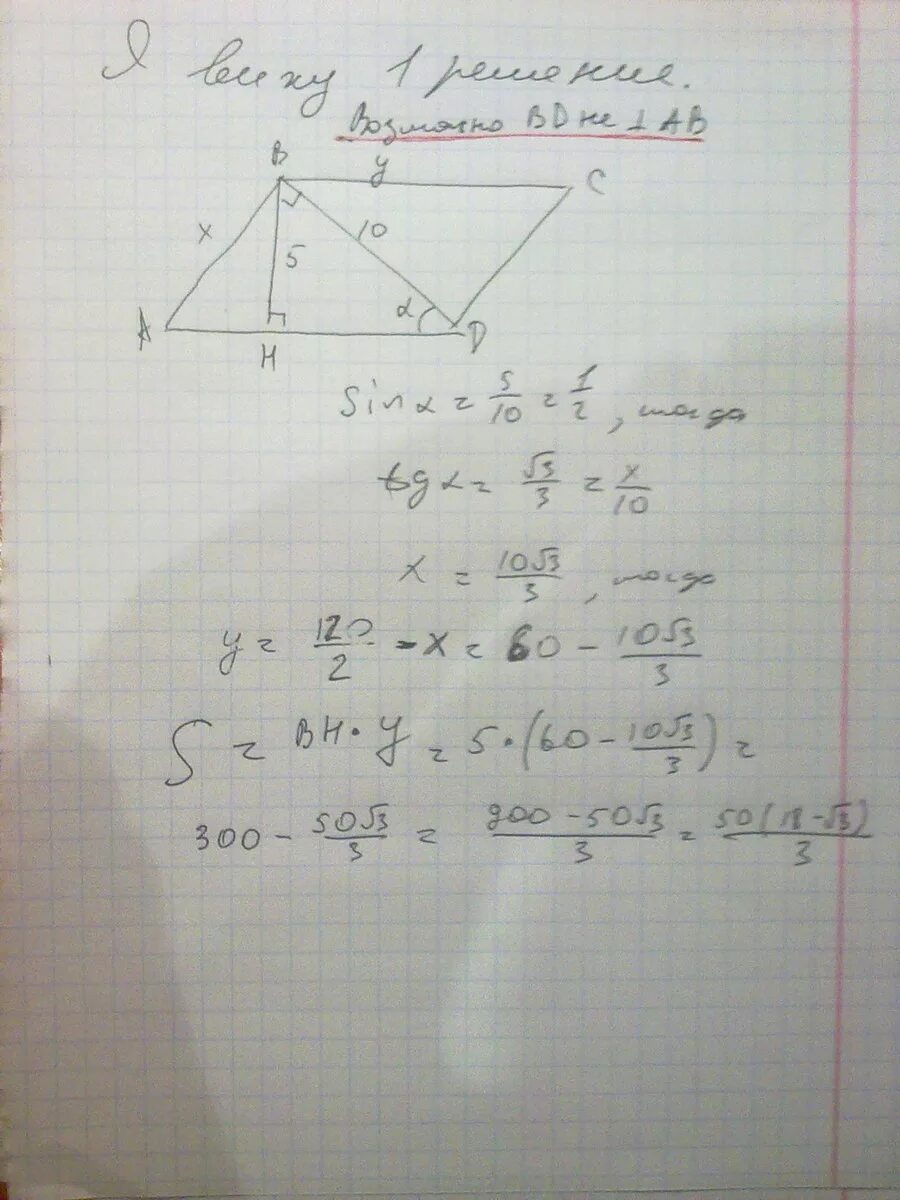 Я вижу 1 решение.
Возможно BD не ⊥ AB
B
y
C
x
10
5
α
A
H
D
sin α = 5/10 = 1/2, тогда
tg α = √3/3 = x/10
x = 10√3/3, тогда
y = 120/2 - x = 60 - 10√3/3
S = BH · y = 5 · (60 - 10√3/3) =
300 - 50√3/3 = 900 - 50√3/3 = 50(18 - √3)/3